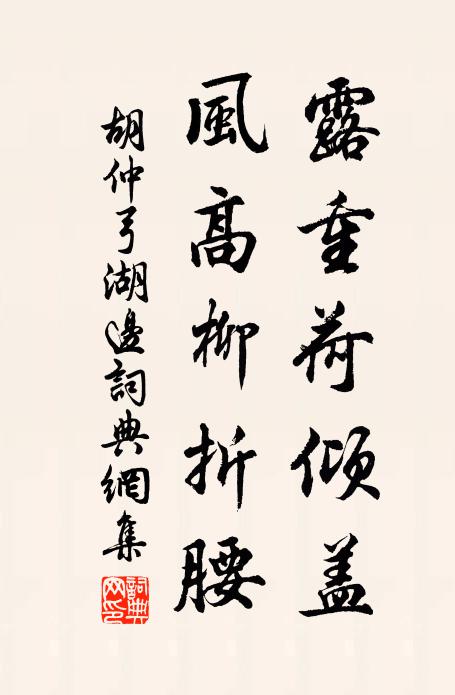 露重荷倾盖
風高柳折腰
胡仲弓湖邊詞典網集
詞典网印